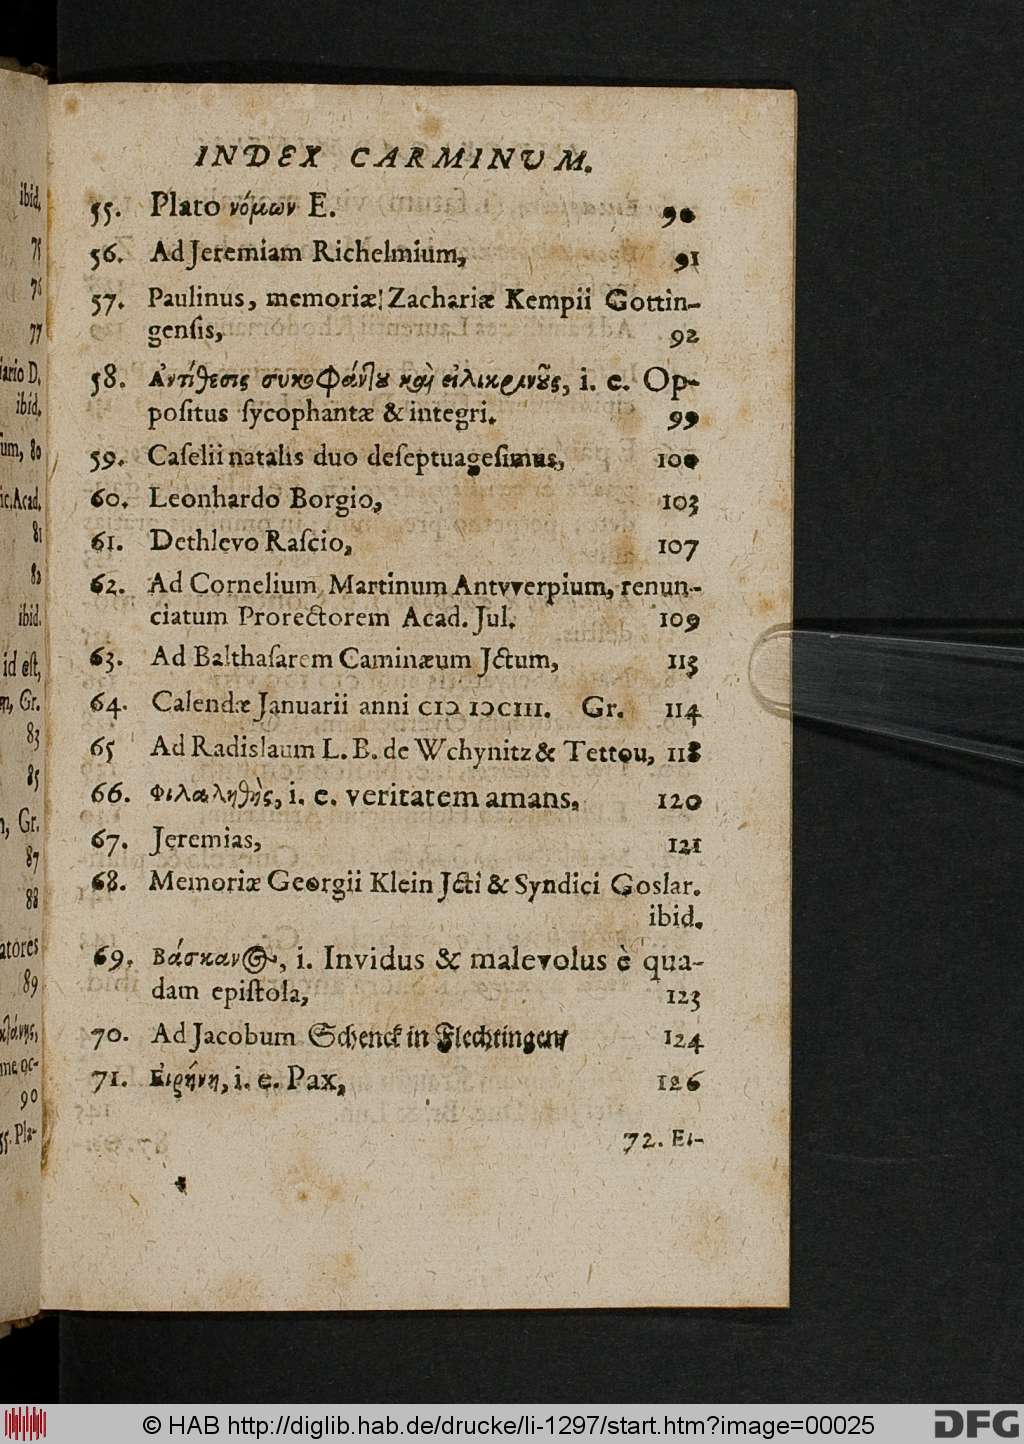 ibid.
75
76
77
ario D.
ibid.
80
ic. Acad.
81
82
ibid.
id eſt,
Gr.
83
85
Gr.
87
88
atores
89
90
55. Pla-
INDEX CARMINUM.
55. Plato νόμων E. 90
56. Ad Jeremiam Richelmium, 91
57. Paulinus, memoriæ Zachariæ Kempii Gottin-
genſis, 92
58. Ἀντίθεσις συκοφάντου καὶ εἰλικρινοῦς, i. e. Op-
poſitus ſycophantæ & integri. 99
59. Caſelii natalis duo deſeptuageſimus, 100
60. Leonhardo Borgio, 103
61. Dethlevo Raſcio, 107
62. Ad Cornelium Martinum Antvverpium, renun-
ciatum Prorectorem Acad. Jul. 109
63. Ad Balthaſarem Caminæum Jctum, 113
64. Calendæ Januarii anni CIↃ IↃCIII. Gr. 114
65 Ad Radislaum L. B. de Wchynitz & Tettou, 118
66. Φιλαληθὴς, i. e. veritatem amans, 120
67. Jeremias, 121
68. Memoriæ Georgii Klein Jcti & Syndici Goslar.
ibid.
69. Βάσκανος, i. Invidus & malevolus è qua-
dam epiſtola, 123
70. Ad Jacobum Schenck in Flechtingen, 124
71. Εἰρήνη, i. e. Pax, 126
72. Ει-
© HAB http://diglib.hab.de/drucke/li-1297/start.htm?image=00025
DFG